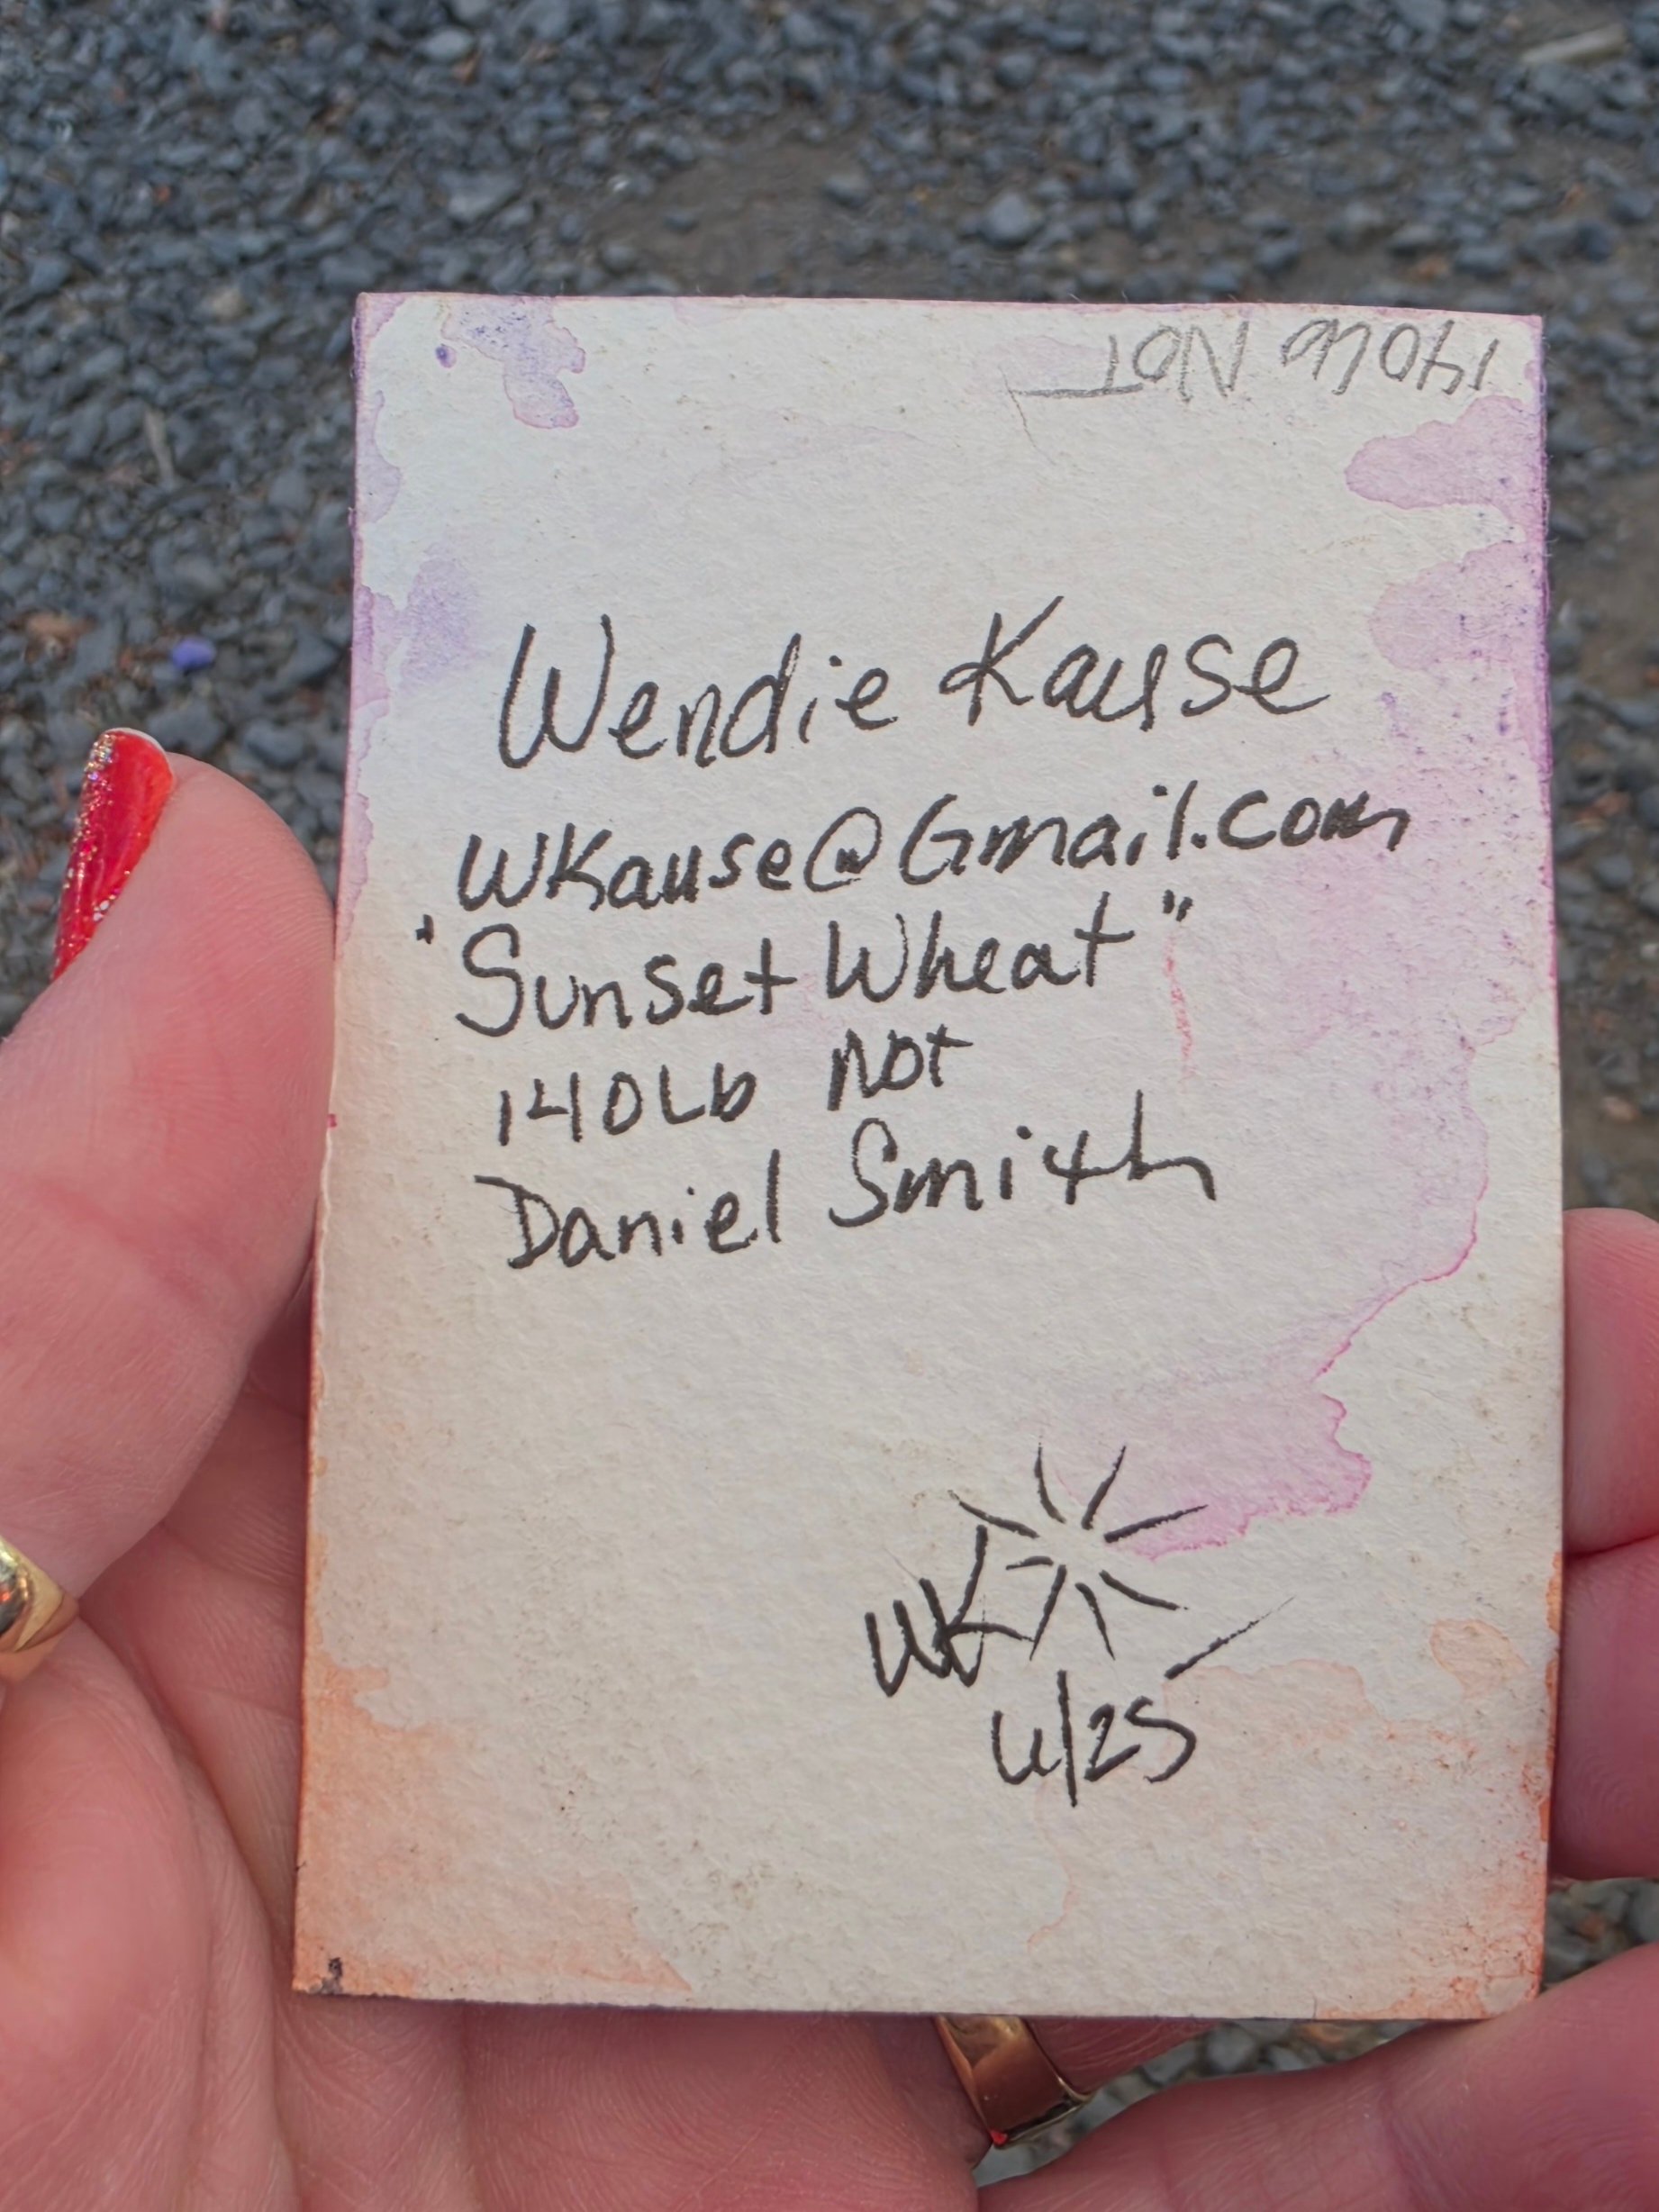 140lb NOT
Wendie Kause
WKause@Gmail.com
"Sunset Wheat"
140Lb Not
Daniel Smith
WK
6/25